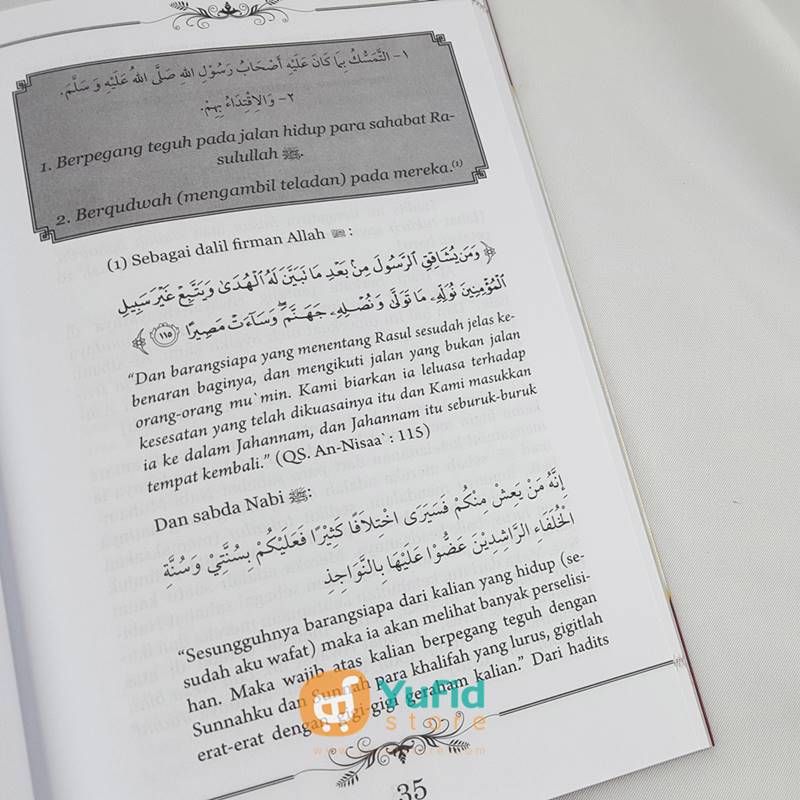 ١- التَّمَسُّكُ بِمَا كَانَ عَلَيْهِ أَصْحَابُ رَسُوْلِ اللهِ صَلَّى اللهُ عَلَيْهِ وَ سَلَّمَ.
٢- وَالِاقْتِدَاءُ بِهِمْ.
1. Berpegang teguh pada jalan hidup para sahabat Ra-
sulullah ﷺ.
2. Berqudwah (mengambil teladan) pada mereka.(1)
(1) Sebagai dalil firman Allah :
﴿ وَمَن يُشَاقِقِ ٱلرَّسُولَ مِنۢ بَعْدِ مَا تَبَيَّنَ لَهُ ٱلْهُدَىٰ وَيَتَّبِعْ غَيْرَ سَبِيلِ
ٱلْمُؤْمِنِينَ نُوَلِّهِۦ مَا تَوَلَّىٰ وَنُصْلِهِۦ جَهَنَّمَ ۖ وَسَآءَتْ مَصِيرًا ١١٥ ﴾
“Dan barangsiapa yang menentang Rasul sesudah jelas ke-
benaran baginya, dan mengikuti jalan yang bukan jalan
orang-orang mu`min. Kami biarkan ia leluasa terhadap
kesesatan yang telah dikuasainya itu dan Kami masukkan
ia ke dalam Jahannam, dan Jahannam itu seburuk-buruk
tempat kembali.” (QS. An-Nisaa` : 115)
Dan sabda Nabi ﷺ:
إِنَّهُ مَنْ يَعِشْ مِنْكُمْ فَسَيَرَى اخْتِلَافًا كَثِيْرًا فَعَلَيْكُمْ بِسُنَّتِيْ وَسُنَّةِ
الْخُلَفَاءِ الرَّاشِدِيْنَ عَضُّوْا عَلَيْهَا بِالنَّوَاجِذِ
“Sesungguhnya barangsiapa dari kalian yang hidup (se-
sudah aku wafat) maka ia akan melihat banyak perselisi-
han. Maka wajib atas kalian berpegang teguh dengan
Sunnahku dan Sunnah para khalifah yang lurus, gigitlah
erat-erat dengan gigi-gigi geraham kalian.” Dari hadits
Yufid
store
35